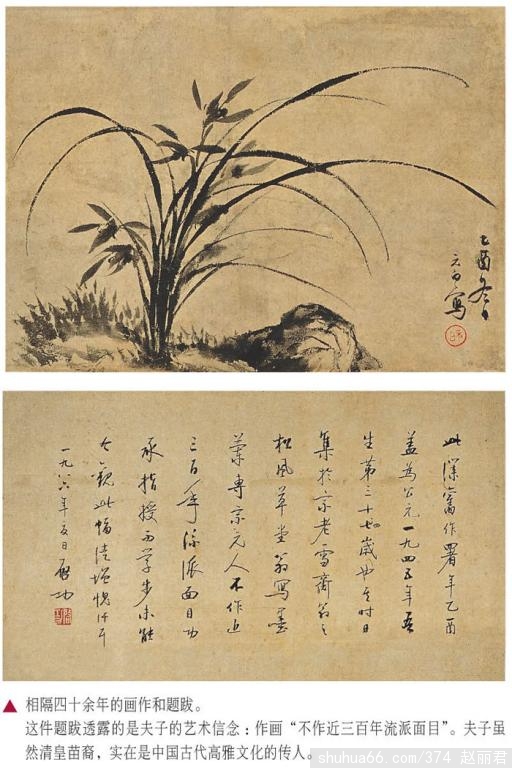 乙酉冬日
元白寫
此僕舊作署年乙酉
蓋為公元一九四五年吾
生第三十四歲也其時日
集於宗老雪齋翁之
松風草堂翁寫墨
蘭專宗元人不作近
三百年流派面目功
承指授而學步未能
今觀此幅徒增愧汗耳
一九八六年夏日啟功
▲ 相隔四十余年的画作和题跋。
这件题跋透露的是夫子的艺术信念：作画“不作近三百年流派面目”。夫子虽
然清皇苗裔，实在是中国古代高雅文化的传人。
shuhua66.com/374 赵丽君